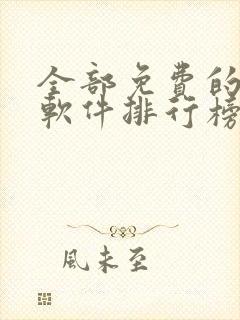 全部免費的
軟件排行榜
風未至